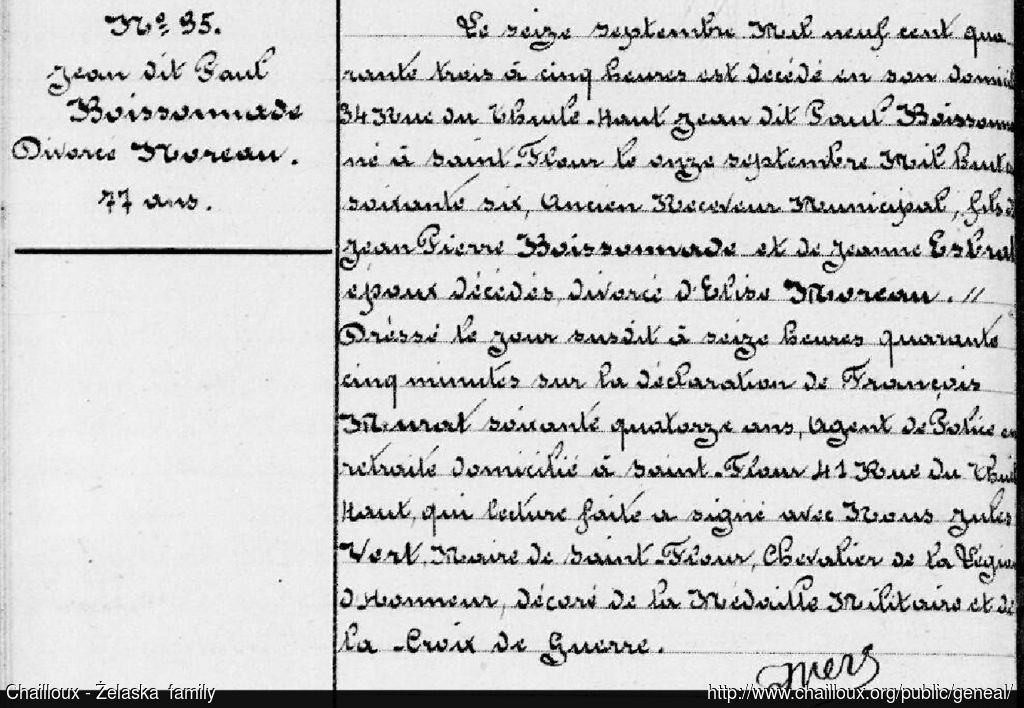 Nº 95.
Jean dit Paul
Boissonnade
Divorcé Moreau.
77 ans.
Le seize septembre Mil neuf cent qua-
rante trois à cinq heures est décédé en son domici
34 Rue du Thuile-Haut Jean dit Paul Boissonn
né à Saint-Flour le onze septembre Mil huit c
soixante six, Ancien Receveur Municipal, fils d
Jean Pierre Boissonnade et de Jeanne Estrat
époux décédés, divorcé d'Elise Moreau. //
Dréssé le jour susdit à seize heures quarante
cinq minutes sur la déclaration de François
Murat soixante quatorze ans, Agent de Police en
retraité domicilié à Saint-Flour 41 Rue du Thuil
Haut, qui lecture faite a signé avec Nous Jules
Vert, Maire de Saint-Flour, Chevalier de la Légion
d'Honneur, décoré de la Médaille Militaire et de
la Croix de Guerre.
Chailloux - Żelaska family
http://www.chailloux.org/public/geneal/